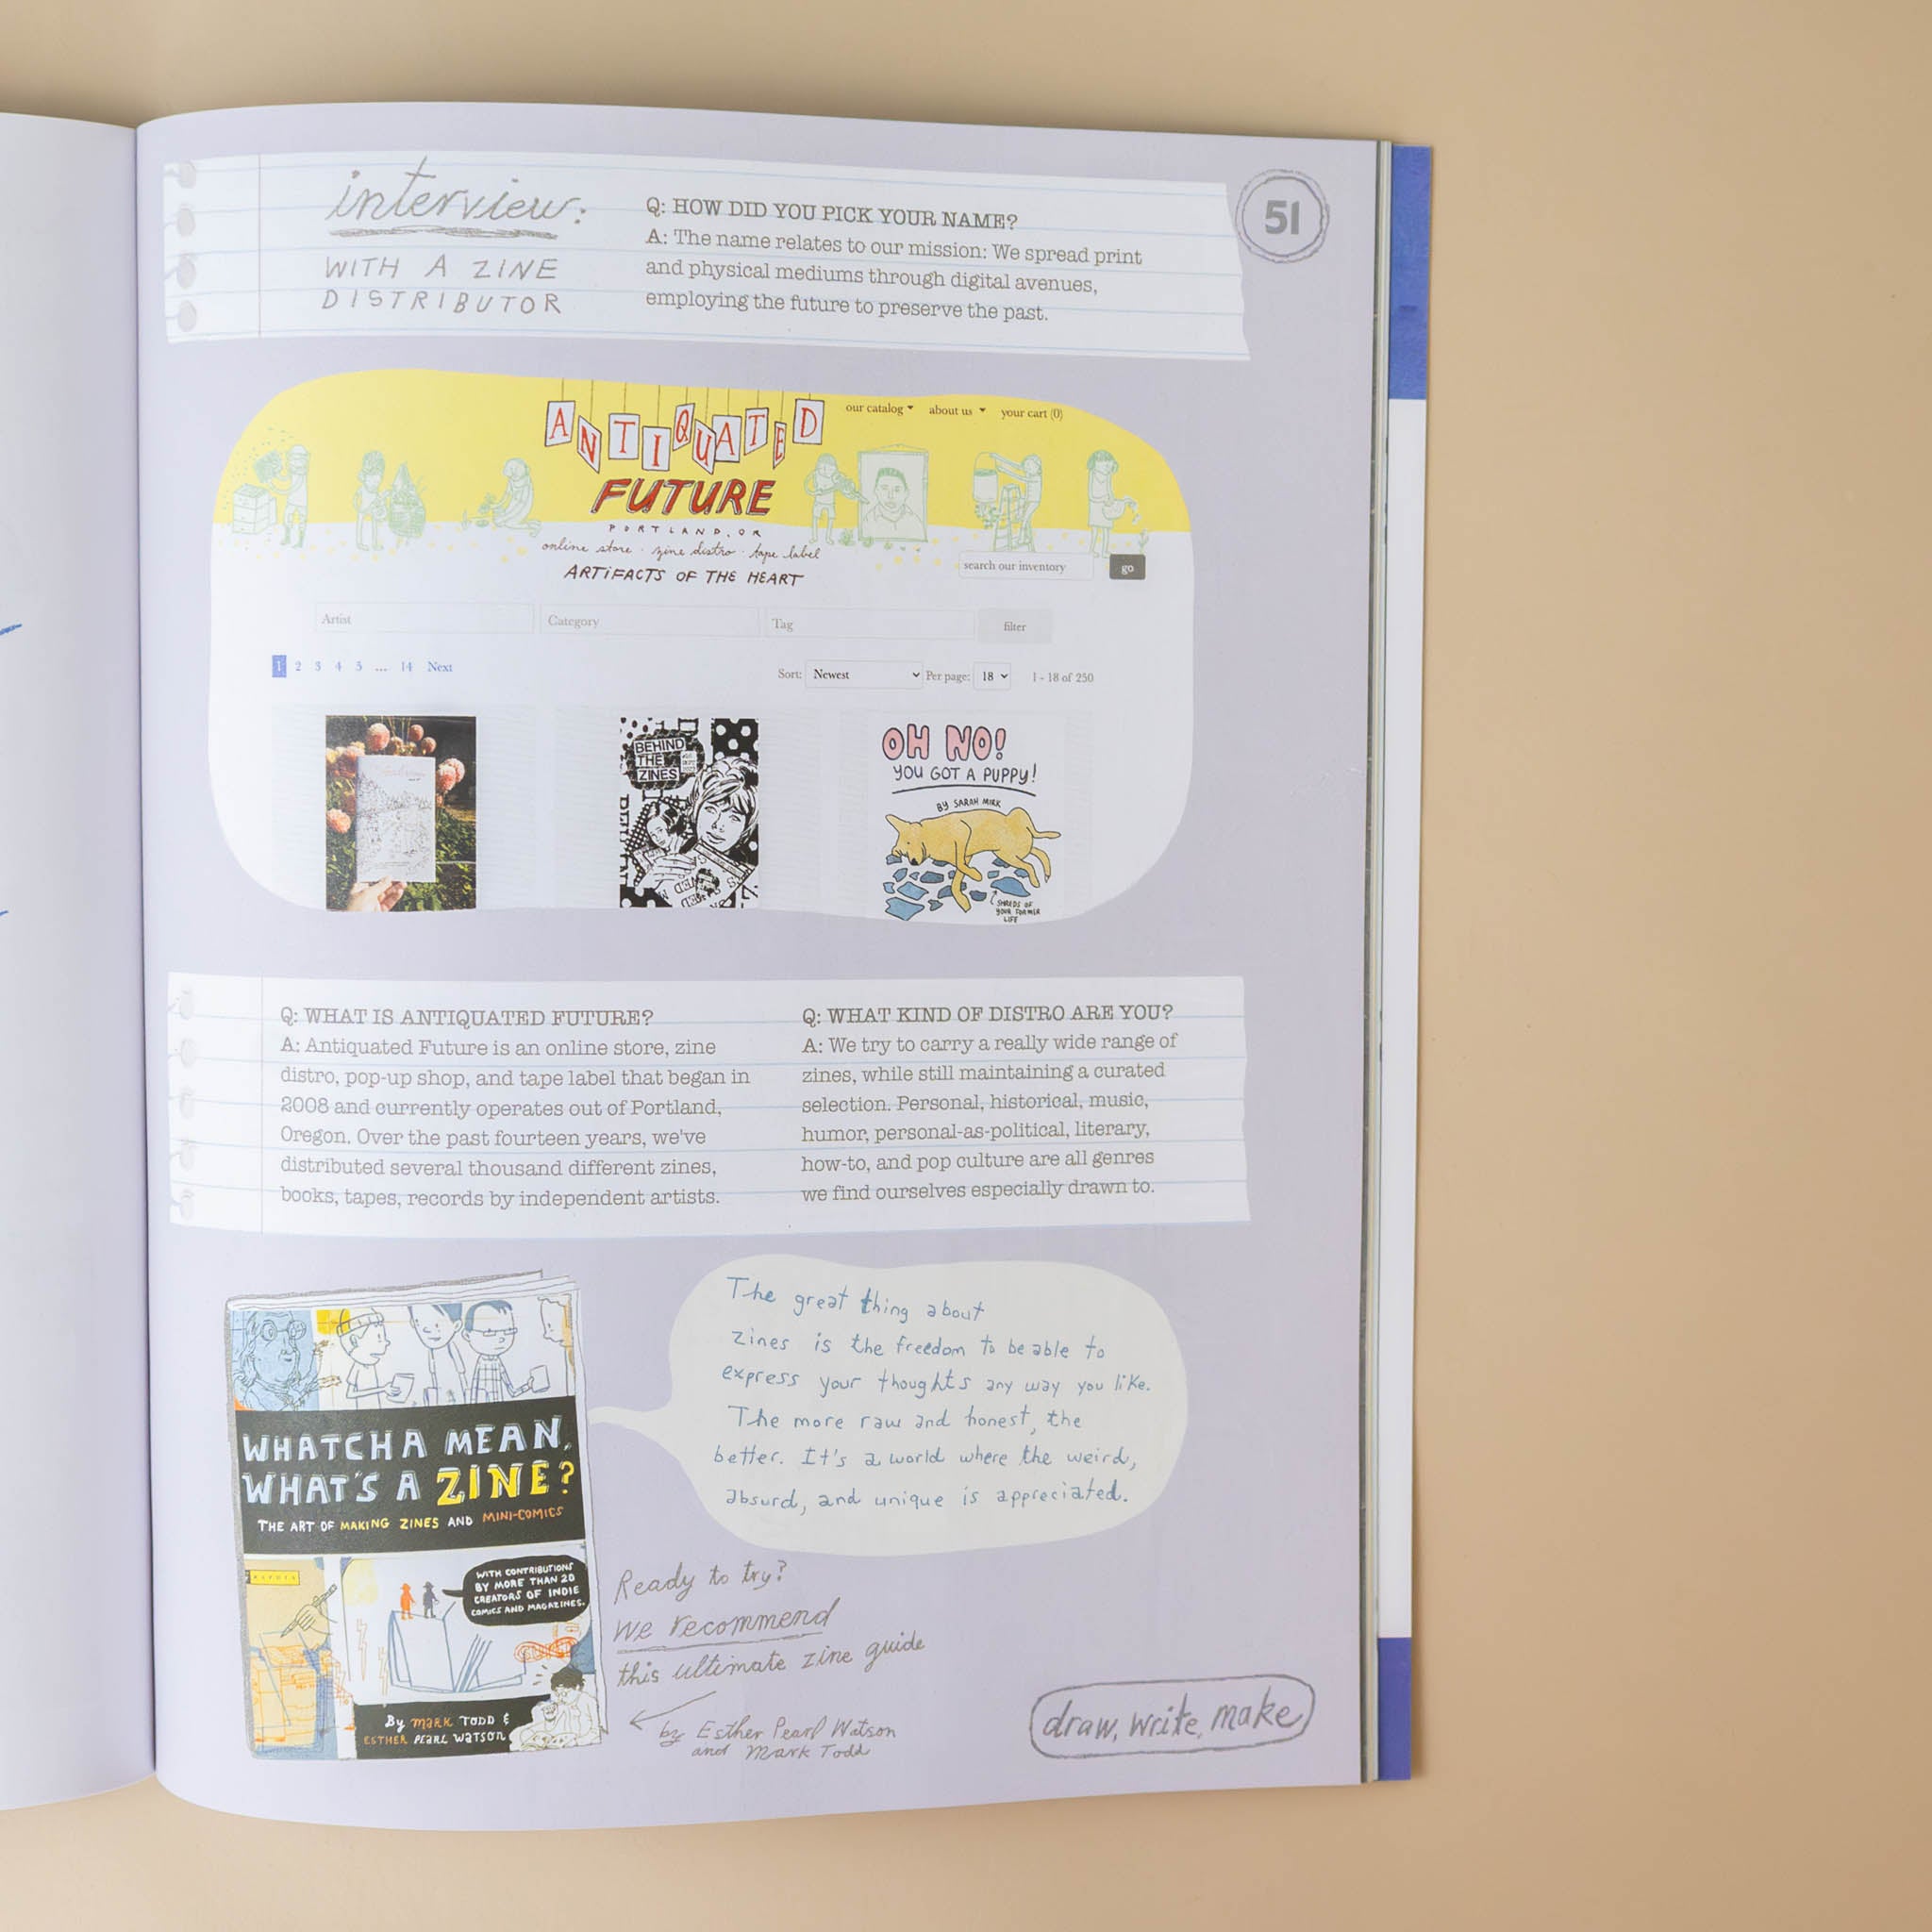 interview:
WITH A ZINE
DISTRIBUTOR
Q: HOW DID YOU PICK YOUR NAME?
A: The name relates to our mission: We spread print
and physical mediums through digital avenues,
employing the future to preserve the past.
51
our catalog about us your cart (0)
ANTIQUATED
FUTURE
PORTLAND, OR
online store · zine distro · tape label
ARTIFACTS OF THE HEART
search our inventory go
Artist Category Tag filter
1 2 3 4 5 ... 14 Next
Sort: Newest Per page: 18 1 - 18 of 250
BEHIND
THE
ZINES
OH NO!
YOU GOT A PUPPY!
BY SARAH MIRK
SHREDS OF
YOUR FORMER
LIFE
Q: WHAT IS ANTIQUATED FUTURE?
A: Antiquated Future is an online store, zine
distro, pop-up shop, and tape label that began in
2008 and currently operates out of Portland,
Oregon. Over the past fourteen years, we've
distributed several thousand different zines,
books, tapes, records by independent artists.
Q: WHAT KIND OF DISTRO ARE YOU?
A: We try to carry a really wide range of
zines, while still maintaining a curated
selection. Personal, historical, music,
humor, personal-as-political, literary,
how-to, and pop culture are all genres
we find ourselves especially drawn to.
WHATCHA MEAN,
WHAT'S A ZINE?
THE ART OF MAKING ZINES AND MINI-COMICS
WITH CONTRIBUTIONS
BY MORE THAN 20
CREATORS OF INDIE
COMICS AND MAGAZINES.
By MARK TODD &
ESTHER PEARL WATSON
The great thing about
zines is the freedom to be able to
express your thoughts any way you like.
The more raw and honest, the
better. It's a world where the weird,
absurd, and unique is appreciated.
Ready to try?
We recommend
this ultimate zine guide
by Esther Pearl Watson
and Mark Todd
draw, write, make